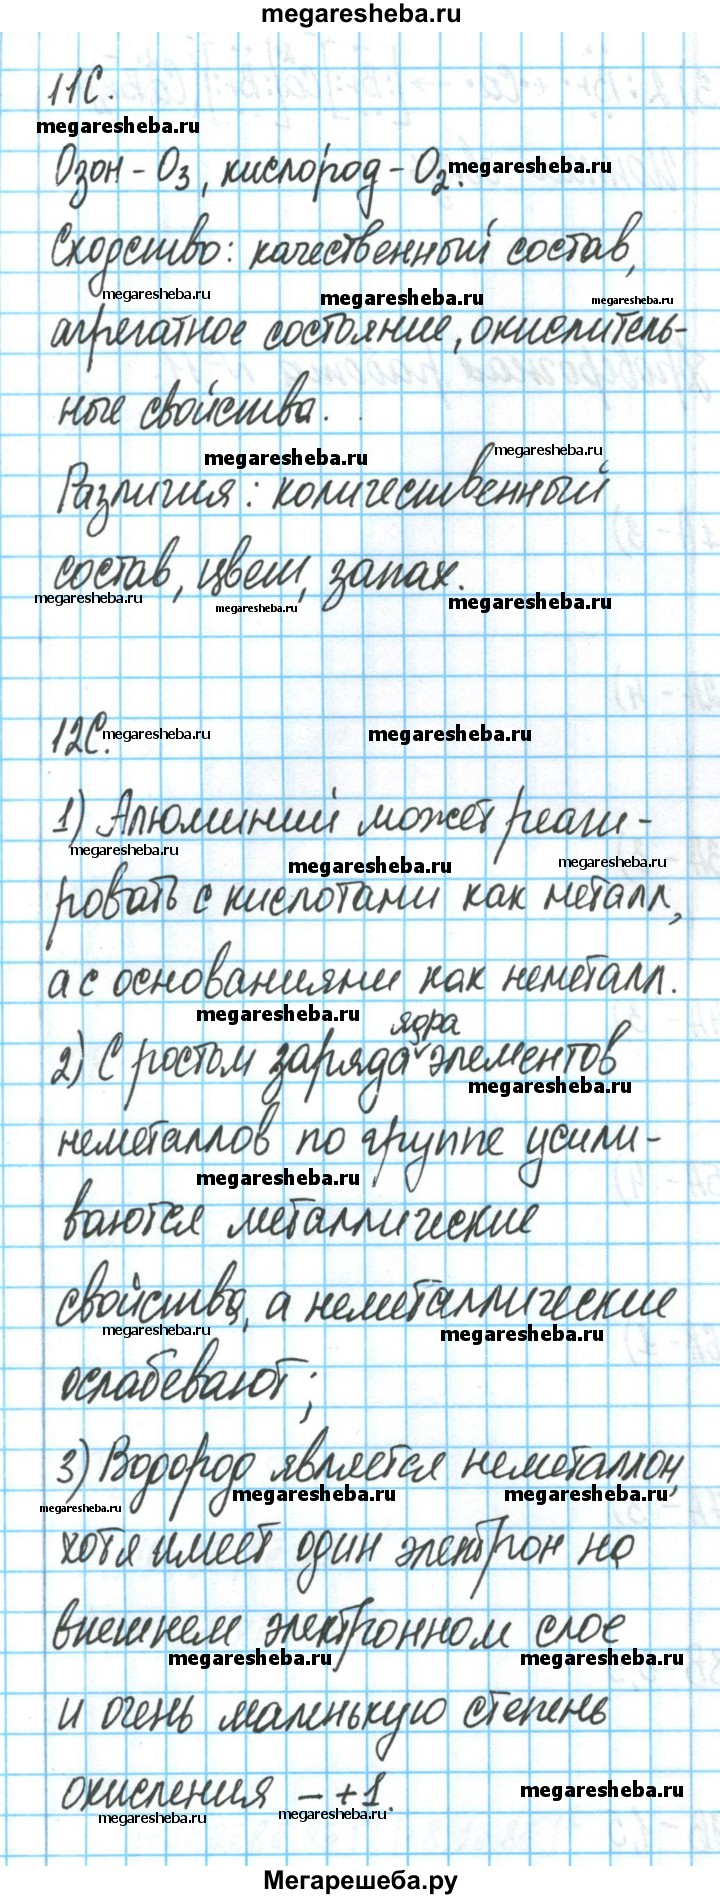 megaresheba.ru
11С.
megaresheba.ru
Озон – O3, кислород – O2.
megaresheba.ru
Сходство: качественный состав,
megaresheba.ru megaresheba.ru megaresheba.ru
агрегатное состояние, окислитель-
ные свойства.
megaresheba.ru megaresheba.ru
Различия: количественный
состав, цвет, запах.
megaresheba.ru megaresheba.ru megaresheba.ru
12С.
megaresheba.ru megaresheba.ru
1) Алюминий может реаги-
megaresheba.ru megaresheba.ru megaresheba.ru
ровать с кислотами как металл,
а с основаниями как неметалл.
megaresheba.ru
ядра
2) С ростом заряда ˅ элементов
megaresheba.ru
неметаллов по группе усили-
megaresheba.ru
ваются металлические
свойства, а неметаллические
megaresheba.ru megaresheba.ru
ослабевают;
3) Водород является неметаллом,
megaresheba.ru megaresheba.ru megaresheba.ru
хотя имеет один электрон на
внешнем электронном слое
megaresheba.ru megaresheba.ru
и очень маленькую степень
окисления – +1.
megaresheba.ru megaresheba.ru megaresheba.ru
Мегарешеба.ру